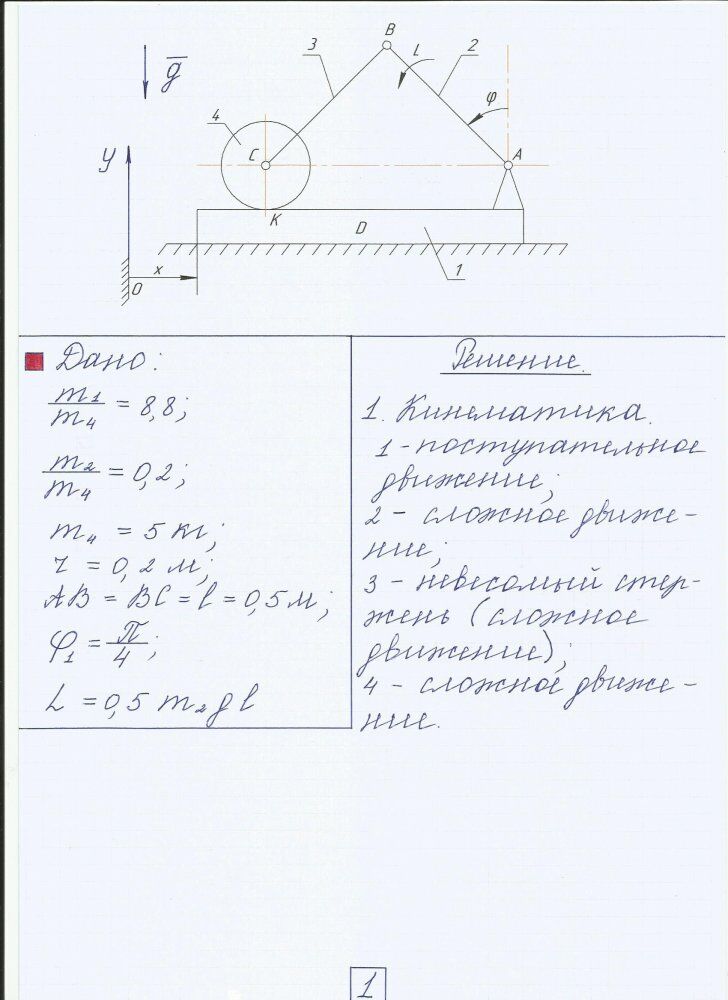 B
3
L
2
g
φ
4
C
A
y
K
D
x
O
1
Дано:
m₁/m₄ = 8,8;
m₂/m₄ = 0,2;
m₄ = 5 кг;
r = 0,2 м;
AB = BC = l = 0,5 м;
φ₁ = π/4;
L = 0,5 m₂gl
Решение.
1. Кинематика.
1 - поступательное
движение;
2 - сложное движе-
ние;
3 - невесомый стер-
жень (сложное
движение);
4 - сложное движе-
ние.
1